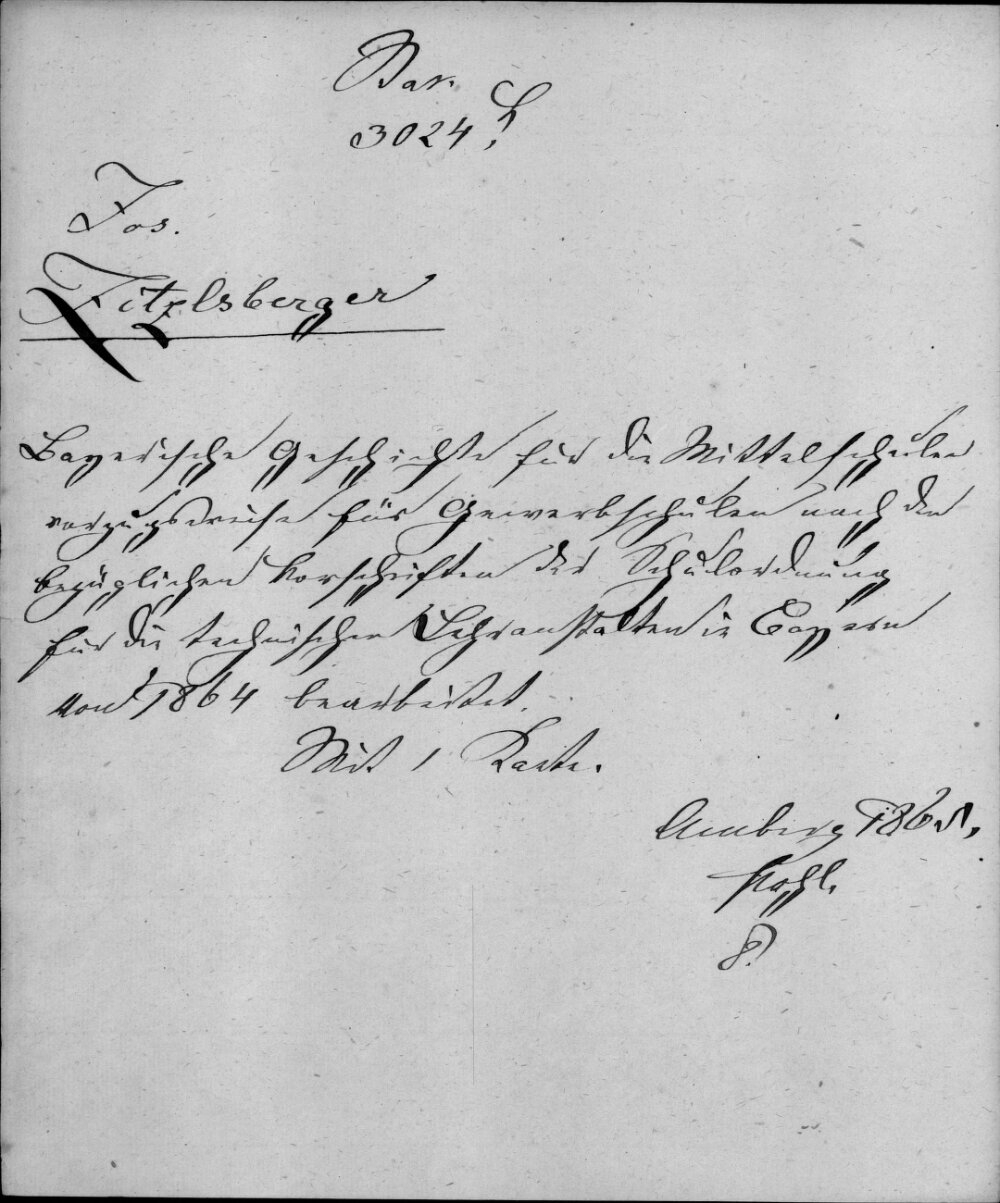 Bav.
3024 f.
Jos.
Zitzlsberger
Bayerische Geschichte für die Mittelschulen
vorzugsweise für Gewerbschulen nach den
bezüglichen Vorschriften der Schulordnung
für die technischen Lehranstalten in Bayern
von 1864 bearbeitet.
Mit 1 Karte.
Amberg 1865.
Pohl.
8.